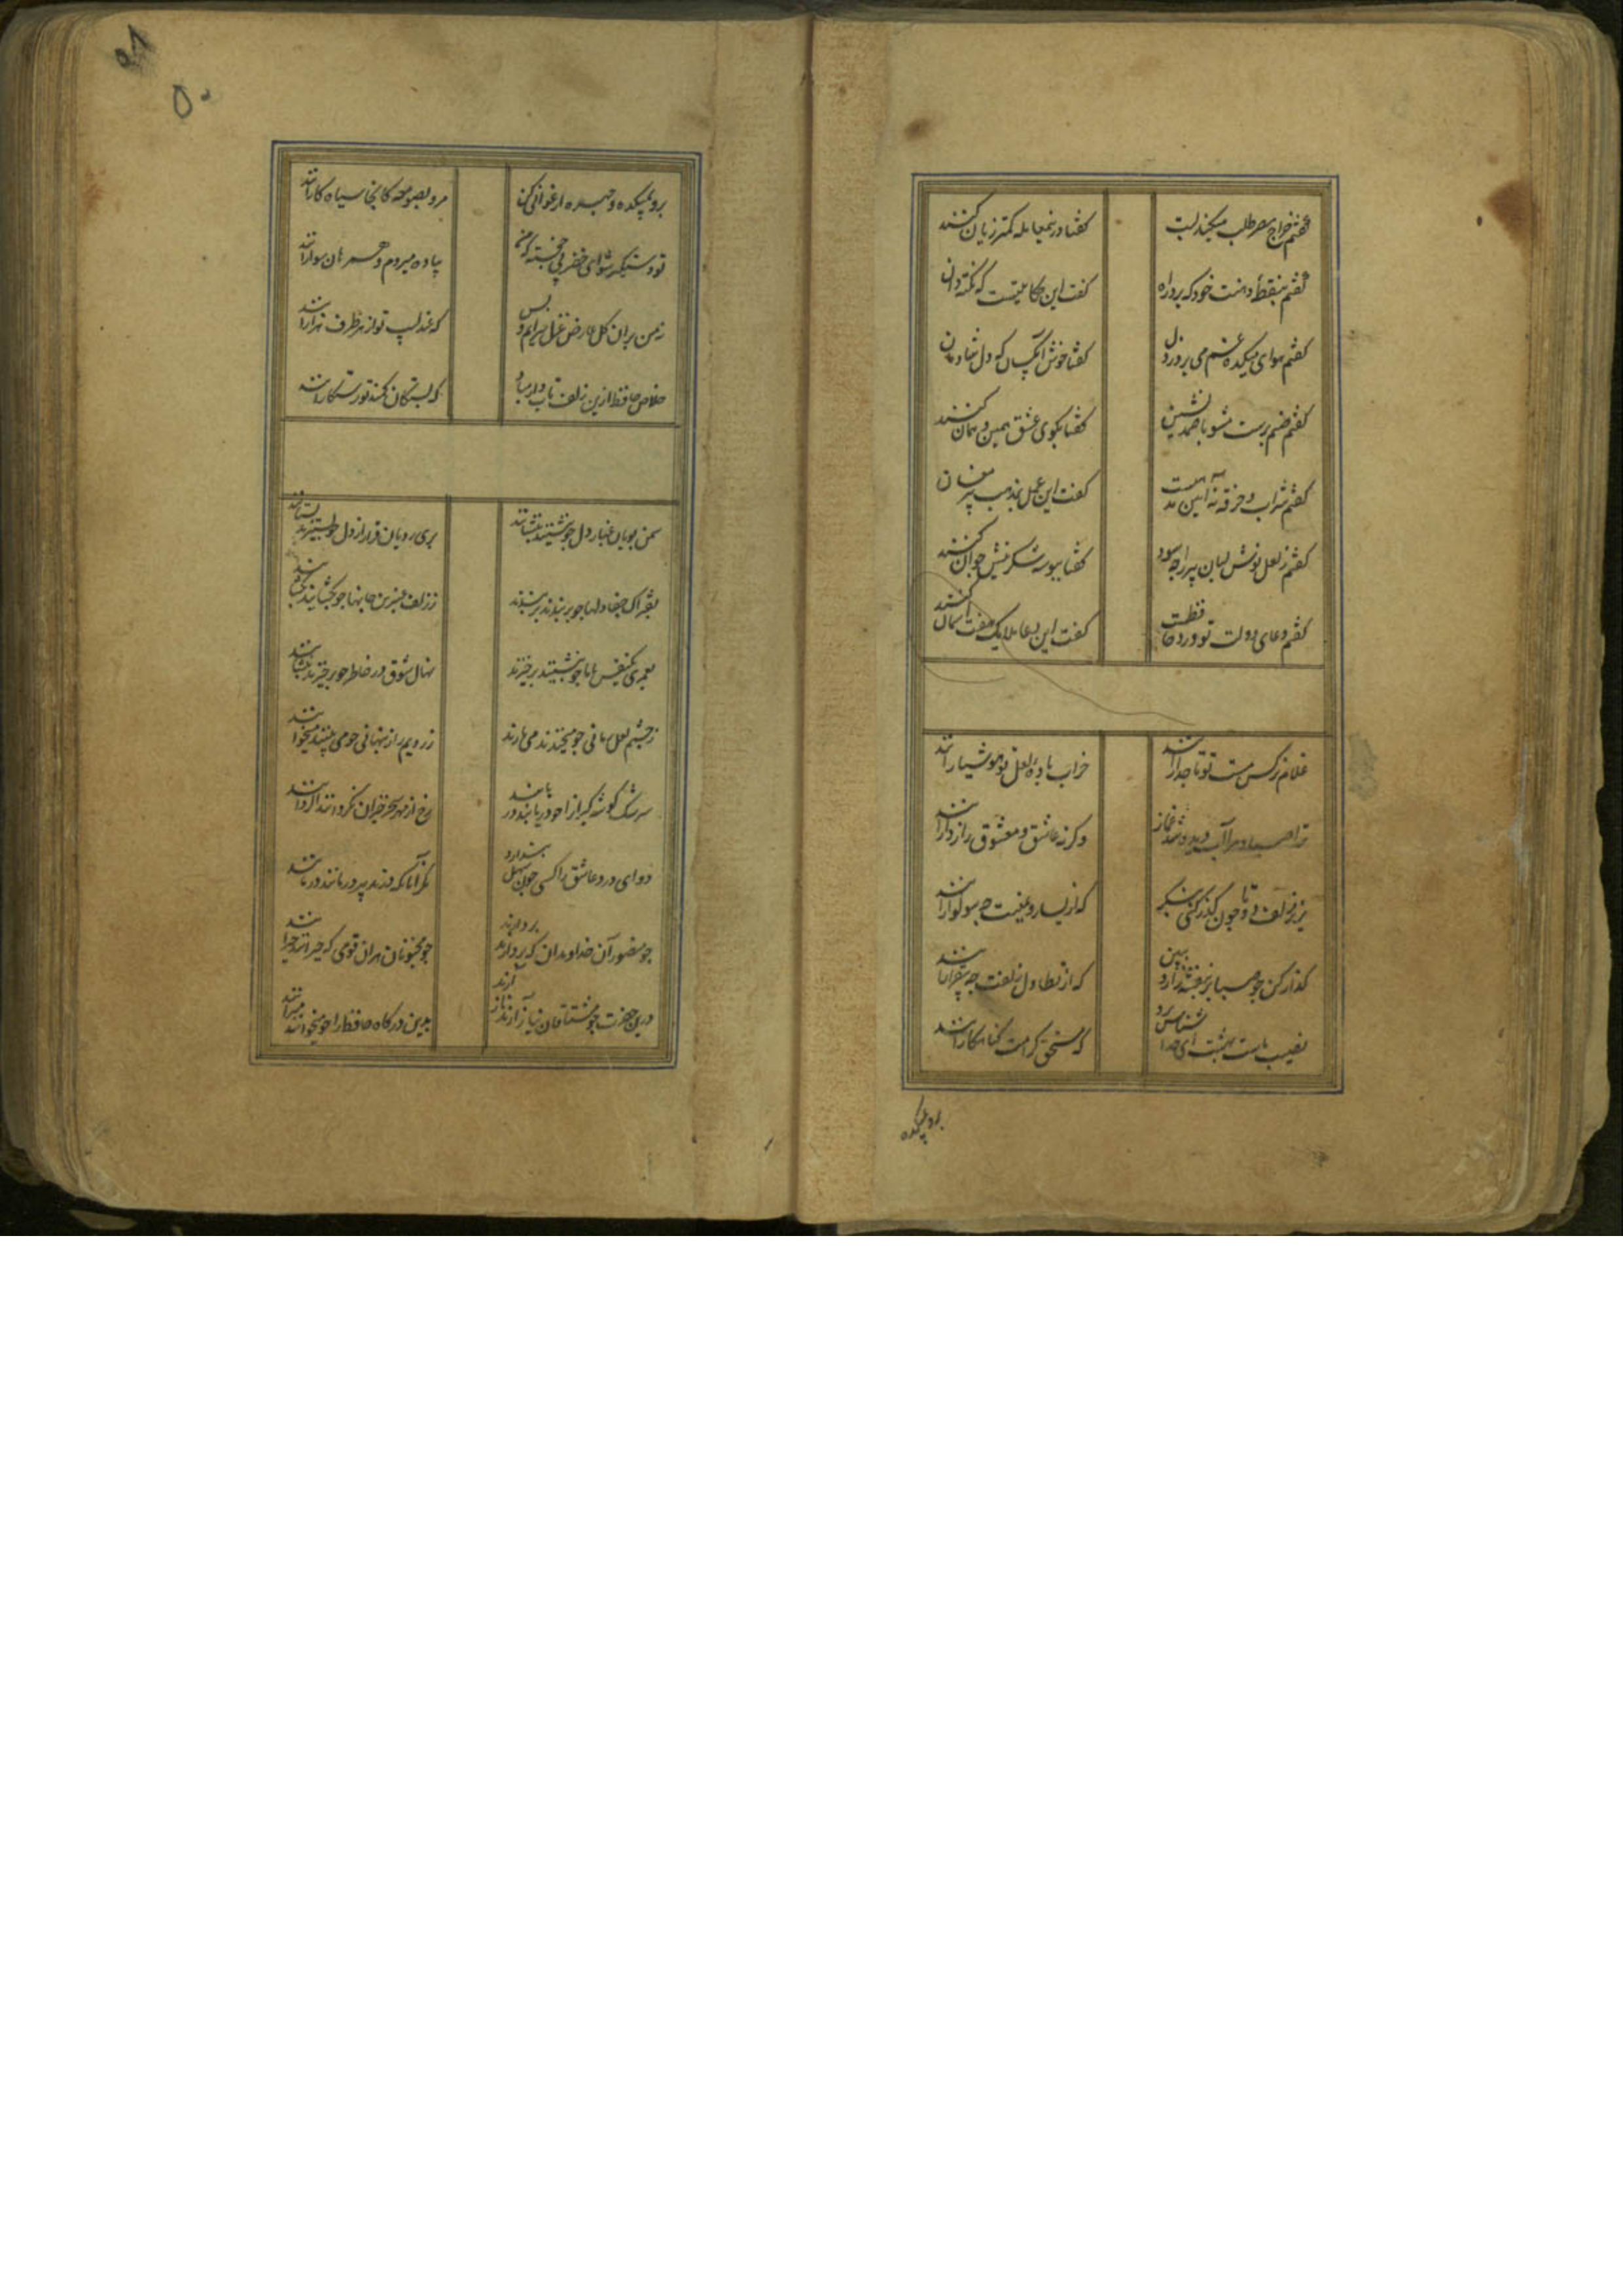 گفتم خراج مصر طلب میکند لبت
گفتا درینمعامله کمتر زیان کنند
گفتم بنقطهٔ دهنت خود که برد راه
گفت این حکایتیست که با نکته دان کنند
گفتم هوای میکده غم می برد ز دل
گفتا خوش آنکسان که دل شادمان کنند
گفتم صنم پرست مشو با صمد نشین
گفتا بکوی عشق همین و همان کنند
گفتم شراب و خرقه نه آیین مذهبست
گفت این عمل بمذهب پیر مغان کنند
گفتم ز لعل نوش لبان پیر را چه سود
گفتا ببوسه شکرینش جوان کنند
گفتم دعای دولت تو ورد حافظست
گفت این دعا ملایک هفت آسمان کنند
غلام نرکس مست تو تاجدارانند
خراب باده لعل تو هوشیارانند
ترا صبا و مرا آب دیده شد غماز
وکرنه عاشق و معشوق رازدارانند
بزیر زلف دوتا چون کذر کنی بنکر
که از یسار و یمینت چه سوکوارانند
کذار کن چو صبا بر بنفشه زار و ببین
که از تطاول زلفت چه بیقرارانند
نصیب ماست بهشت ای خدا شناس برو
که مستحق کرامت کناهکارانند
برو بمیکده
۵۱
۵۰
برو بمیکده و چهره ارغوانی کن
مرو بصومعه کانجا سیاه کارانند
تو دستگیر شو ای خضر پی خجسته که من
پیاده میروم و همرهان سوارانند
نه من بران کل عارض غزل سرایم و بس
که عندلیب تو از هر طرف هزارانند
خلاص حافظ ازین زلف تابدار مباد
که بستکان کمند تو رستکارانند
سمن بویان غبار دل چو بنشینند بنشانند
پری رویان قرار از دل چو بستیزند بستانند
بفتراک جفا دلها چو بربندند بربندند
ز زلف عنبرین جانها چو بکشایند بفشانند
بعمری یکنفس با ما چو بنشینند برخیزند
نهال شوق در خاطر چو برخیزند بنشانند
ز چشمم لعل رمانی چو میخندند می بارند
ز رویم راز پنهانی چو می بینند میخوانند
سرشک کوشه کیرانرا چو دریابند در یابند
رخ از مهر سحرخیزان نکردانند اکر دانند
دوای درد عاشق را کسی چون سهل پندارد
مکر آنانکه در تدبیر درمانند درمانند
چو منصور آن خداوندان که بردارند بردارند
درین حضرت چو مشتاقان نیاز آرند ناز آرند
بدین درکاه حافظ را چو میخوانند میرانند